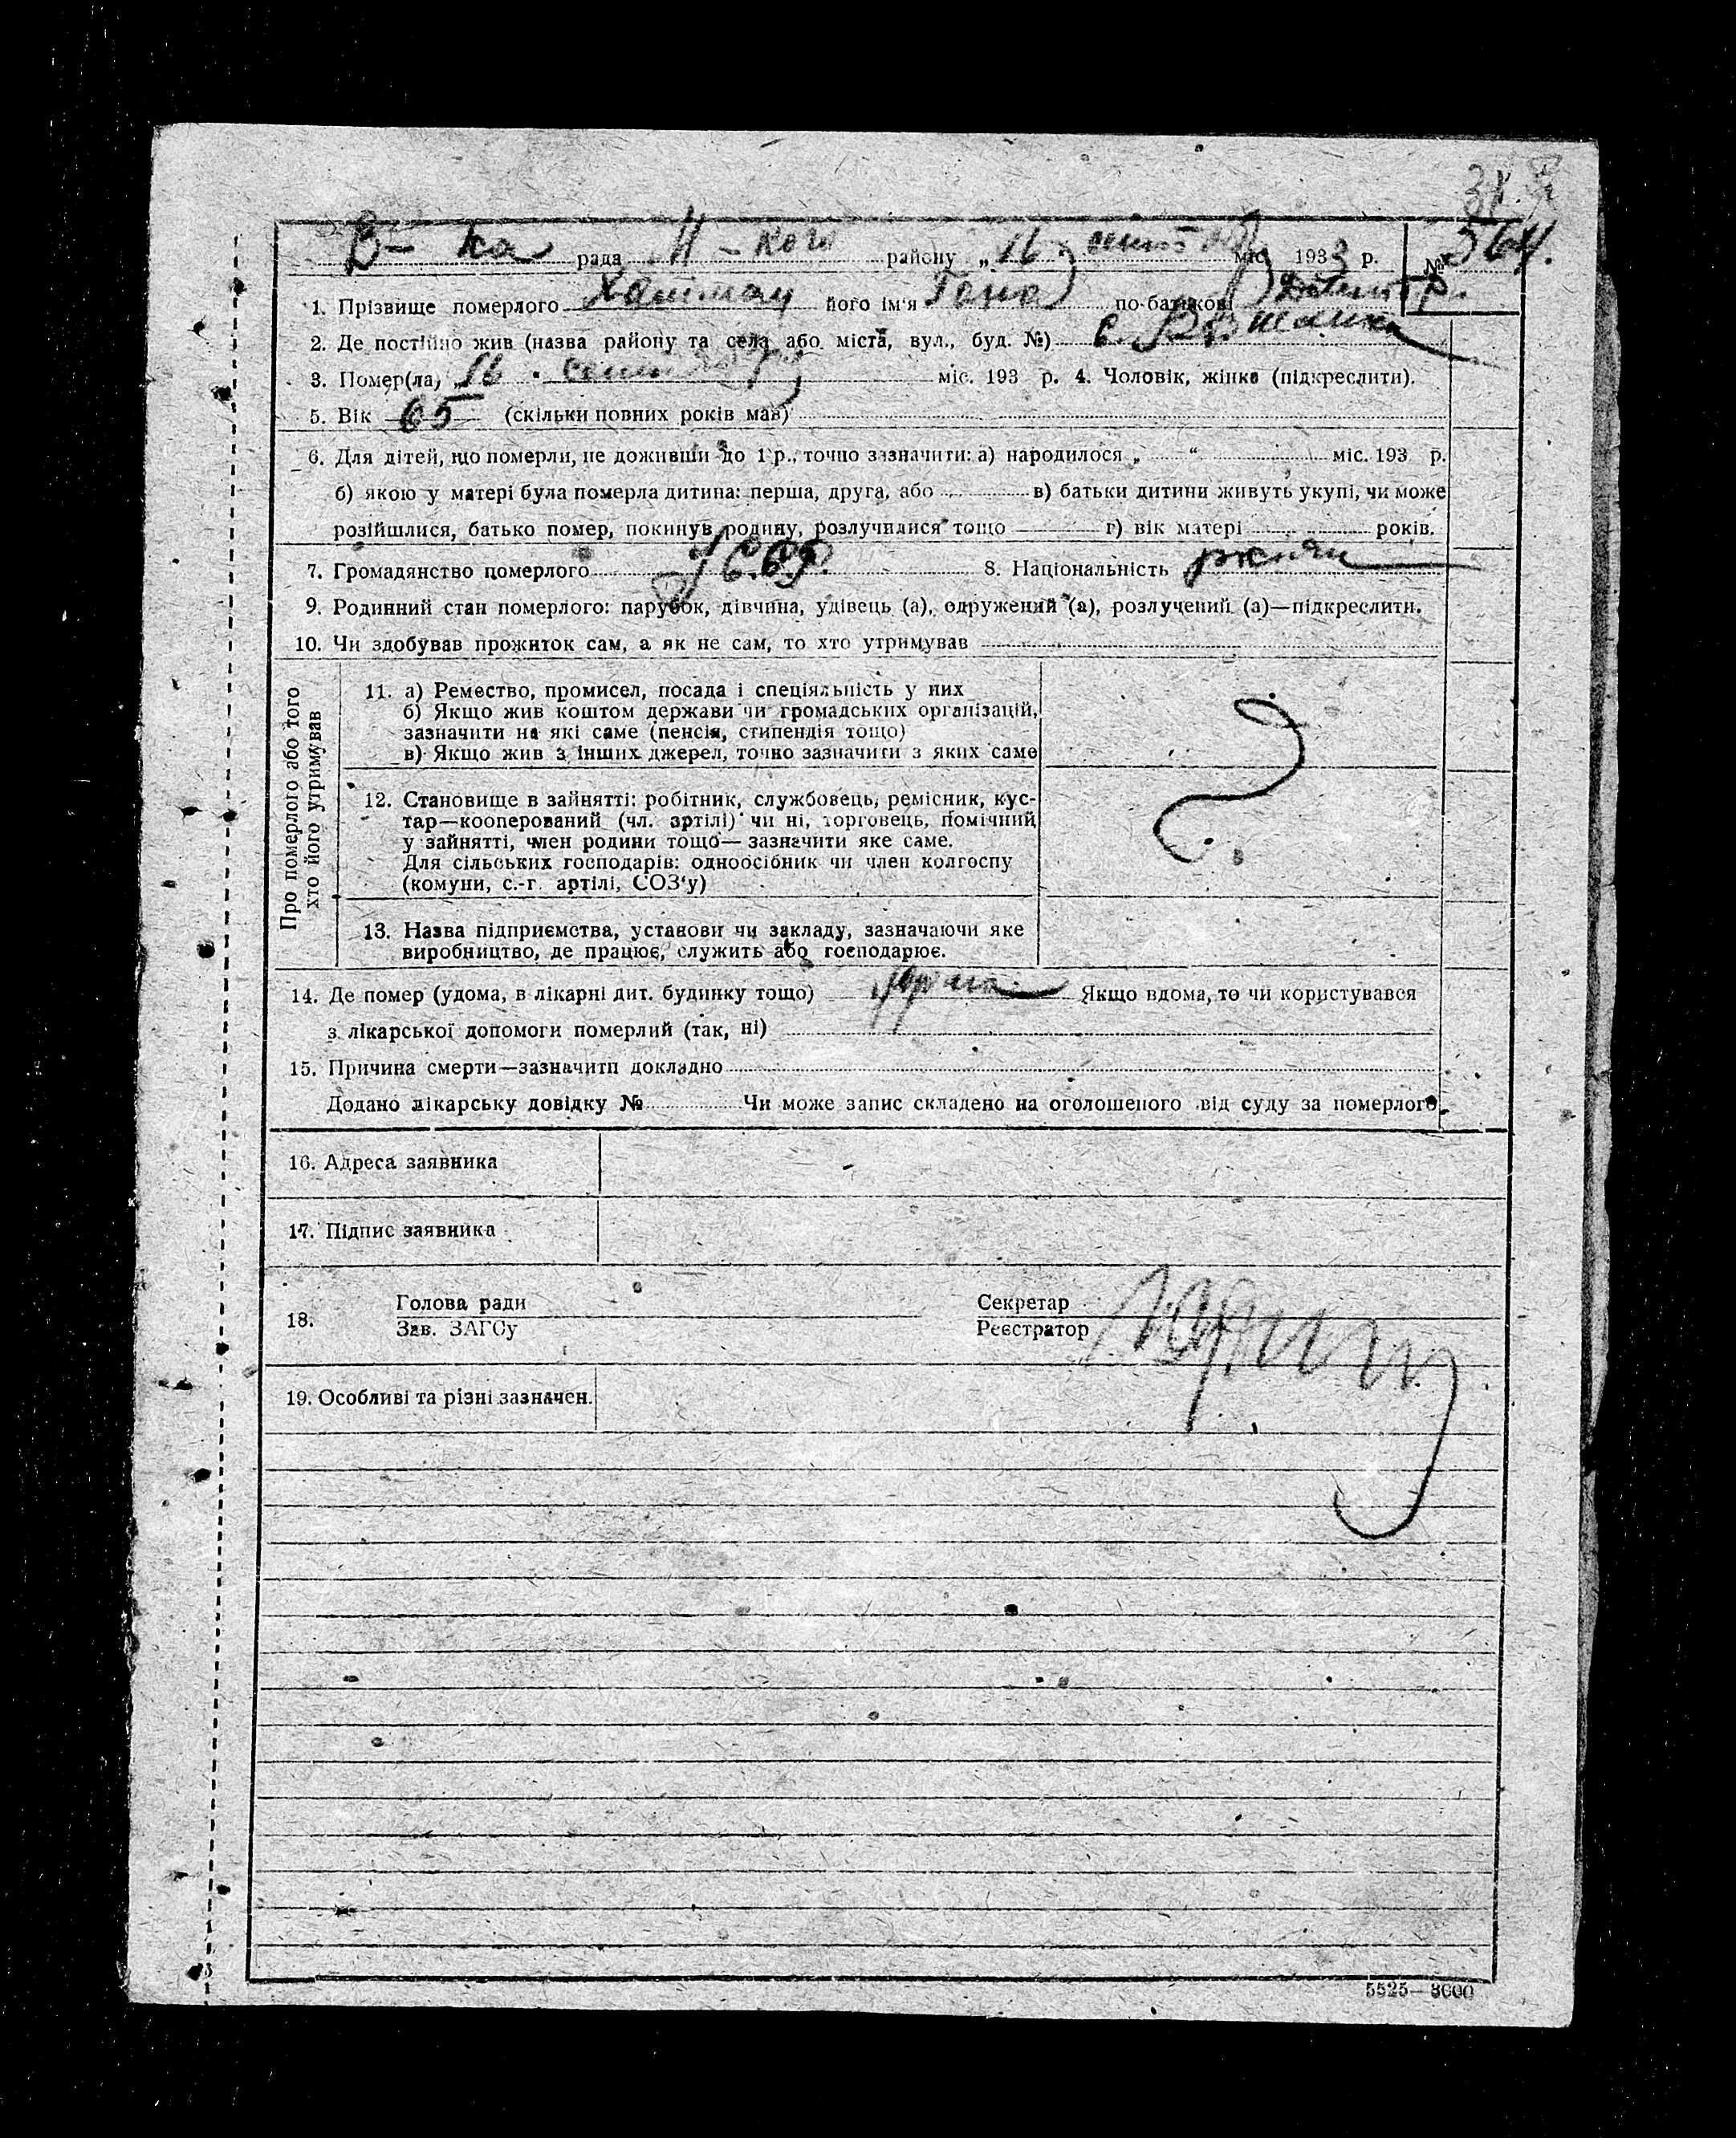 В- ка рада Н - кого району „16 сентября міс. 1933 р. № 564.
1. Прізвище померлого його ім'я по-батькові
2. Де постійно жив (назва району та села або міста, вул., буд. №) с.
3. Помер(ла) 16 сентября міс. 193 р. 4. Чоловік, жінка (підкреслити).
5. Вік 65 (скільки повних років мав)
6. Для дітей, що померли, не доживши до 1 р., точно зазначити: а) народилося „ “ міс. 193 р.
б) якою у матері була померла дитина: перша, друга, або в) батьки дитини живуть укупі, чи може
розійшлися, батько помер, покинув родину, розлучилися тощо г) вік матері років.
7. Громадянство померлого 8. Національність
9. Родинний стан померлого: парубок, дівчина, удівець (а), одружений (а), розлучений (а)—підкреслити.
10. Чи здобував прожиток сам, а як не сам, то хто утримував
Про померлого або того
хто його утримував
11. а) Ремество, промисел, посада і спеціяльність у них
б) Якщо жив коштом держави чи громадських організацій,
зазначити на які саме (пенсія, стипендія тощо)
в) Якщо жив з інших джерел, точно зазначити з яких саме
12. Становище в зайнятті: робітник, службовець, ремісник, кус-
тар—кооперований (чл. артілі) чи ні, торговець, помічний
у зайнятті, член родини тощо— зазначити яке саме.
Для сільських господарів: одноосібник чи член колгоспу
(комуни, с.-г. артілі, СОЗ'у)
13. Назва підприємства, установи чи закладу, зазначаючи яке
виробництво, де працює, служить або господарює.
14. Де помер (удома, в лікарні дит. будинку тощо) Якщо вдома, то чи користувався
з лікарської допомоги померлий (так, ні)
15. Причина смерти—зазначити докладно
Додано лікарську довідку № Чи може запис складено на оголошеного від суду за померлого
16. Адреса заявника
17. Підпис заявника
18. Голова ради Секретар
Зав. ЗАГСу Реєстратор
19. Особливі та різні зазначен.
5525— 8000